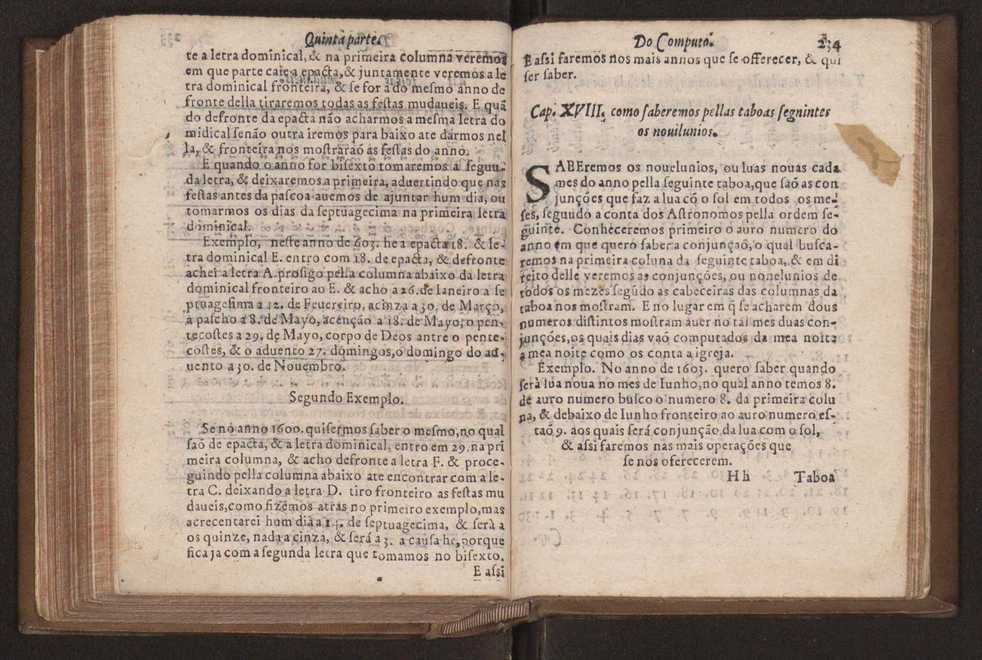 Quinta parte.
te a letra dominical, & na primeira columna veremos
em que parte caie a epacta, & juntamente veremos a le
tra dominical fronteira, & se for a do mesmo anno de
fronte della tiraremos todas as festas mudaueis. E quã
do defronte da epacta não acharmos a mesma letra do
midical senão outra iremos para baixo ate darmos nel
la, & fronteira nos mostraraõ as festas do anno.
E quando o anno for bisexto tomaremos a segun-
da letra, & deixaremos a primeira, aduertindo que nas
festas antes da pascoa auemos de ajuntar hum dia, ou
tomarmos os dias da septuagecima na primeira letra
dominical.
Exemplo, neste anno de 603. he a epacta 18. & le-
tra dominical E. entro com 18. de epacta, & defronte
achei a letra A. prosigo pella columna abaixo da letra
dominical fronteiro ao E. & acho a 26. de Ianeiro a se
ptuagesima a 12. de Feuereiro, acinza a 30. de Março,
a pascho a 8. de Mayo, acenção a 18. de Mayo, o pen-
tecostes a 29. de Mayo, corpo de Deos antre o pente-
costes, & o aduento 27. domingos, o domingo do ad-
uento a 30. de Nouembro.
Segundo Exemplo.
Se no anno 1600. quisermos saber o mesmo, no qual
saõ de epacta, & a letra dominical, entro em 29. na pri
meira columna, & acho defronte a letra F. & proce-
guindo pella columna abaixo ate encontrar com a le-
tra C. deixando a letra D. tiro fronteiro as festas mu
daueis, como fizemos atras no primeiro exemplo, mas
acrecentarei hum dia a 14. de septuagecima, & será a
os quinze, nada a cinza, & será a 3. a causa he, porque
fica ja com a segunda letra que tomamos no bisexto.
E assi
Do Computo.
234
E assi faremos nos mais annos que se offerecer, & qui
ser saber.
Cap. XVIII. como saberemos pellas taboas segnintes
os nouilunios.
SABEremos os nouelunios, ou luas nouas cada
mes do anno pella seguinte taboa, que saõ as con
junções que faz a lua cõ o sol em todos os me-
ses, seguudo a conta dos Astronomos pella ordem se-
guinte. Conheceremos primeiro o auro numero do
anno em que quero saber a conjunçaõ, o qual busca-
remos na primeira coluna da seguinte taboa, & em di
reito delle veremos as conjunções, ou nonelunios de
todos os mezes segũdo as cabeceiras das columnas da
taboa nos mostram. E no lugar em q̃ se acharem dous
numeros distintos mostram auer no tal mes duas con-
junções, os quais dias vaõ computados da mea noita
a mea noite como os conta a igreja.
Exemplo. No anno de 1603. quero saber quando
será lua noua no mes de Iunho, no qual anno temos 8.
de auro numero busco o numero 8. da primeira colu
na, & debaixo de Iunho fronteiro ao auro numero es-
taõ 9. aos quais será conjunção da lua com o sol,
& assi faremos nas mais operações que
se nos oferecerem.
Hh
Taboa